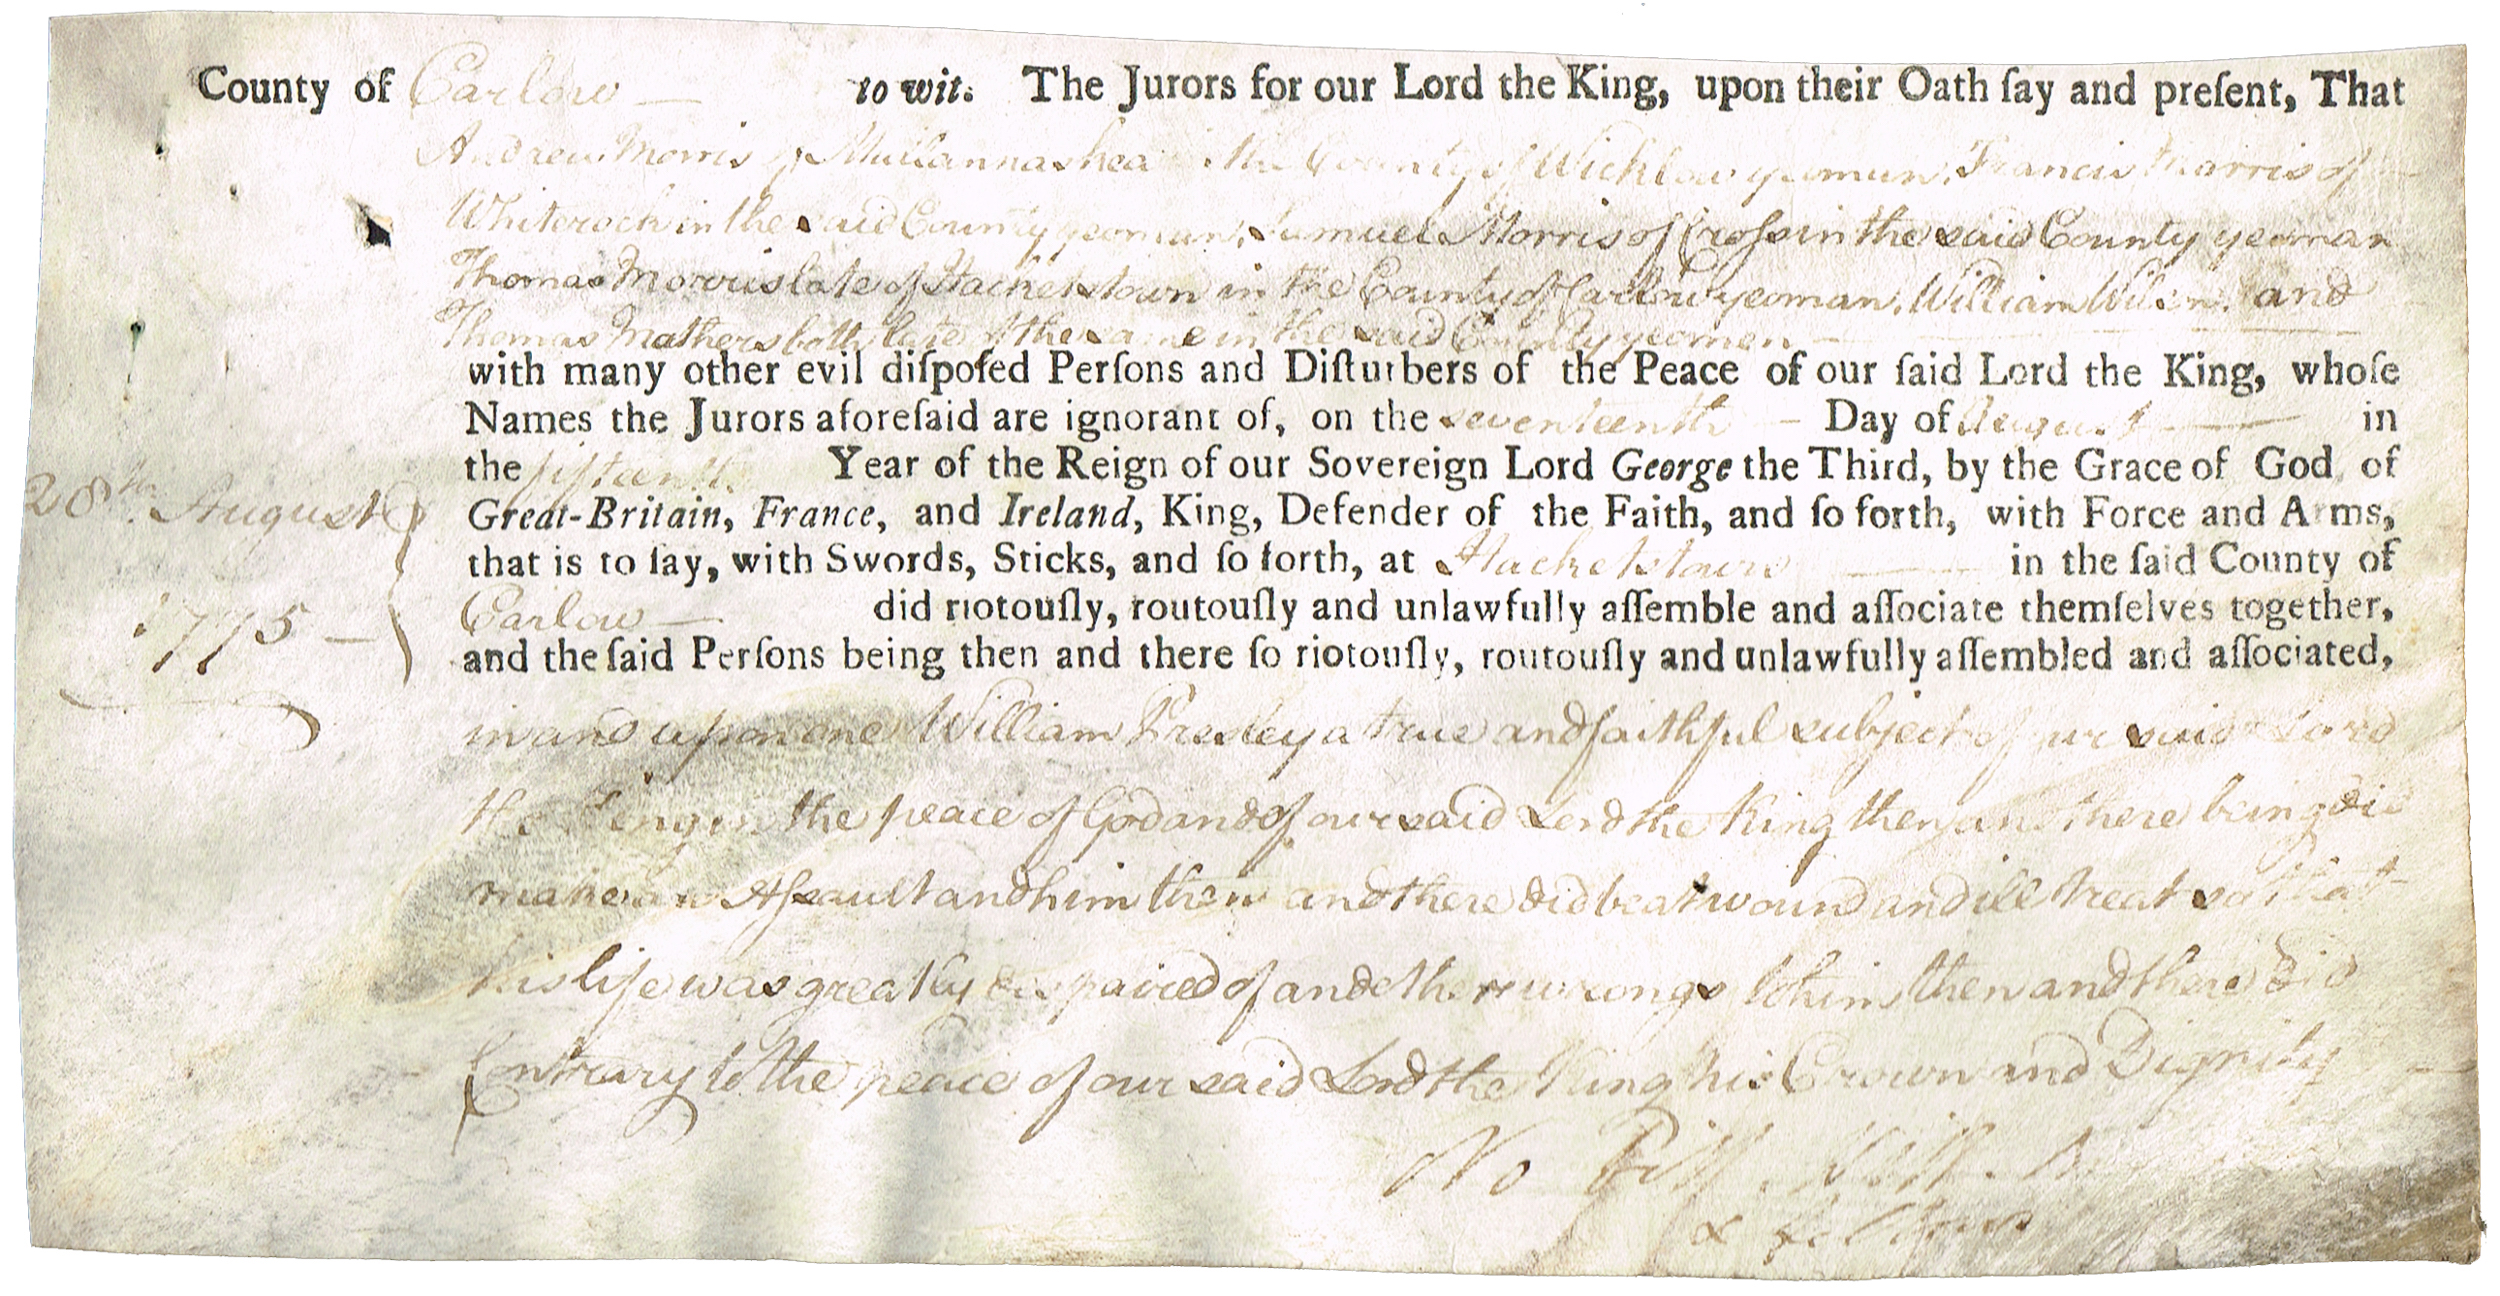 County of Carlow — to wit. The Jurors for our Lord the King, upon their Oath ſay and preſent, That
Andrew Morris of Mullannashea in the County of Wicklow yeoman, Francis Morris of
Whiterock in the said County yeoman, Samuel Morris of Croſs in the said County yeoman
Thomas Morris late of Hacketstown in the County of Carlow yeoman, William Wilson, and
Thomas Mathers both late of the same in the said County yeomen —
with many other evil diſpoſed Perſons and Diſturbers of the Peace of our ſaid Lord the King, whoſe
Names the Jurors aforeſaid are ignorant of, on the seventeenth — Day of August — in
the fifteenth Year of the Reign of our Sovereign Lord George the Third, by the Grace of God of
28th August Great-Britain, France, and Ireland, King, Defender of the Faith, and ſo forth, with Force and Arms,
that is to ſay, with Swords, Sticks, and ſo forth, at Hacketstown — in the ſaid County of
1775 — Carlow — did riotouſly, routouſly and unlawfully aſſemble and aſſociate themſelves together,
and the ſaid Perſons being then and there ſo riotouſly, routouſly and unlawfully aſſembled and aſſociated,
in and upon one William Presley a true and faithful subject of our said Lord
the King in the peace of God and of our said Lord the King then and there being did
make an Aſsault and him then and there did beat wound and ill treat so that
his life was greatly despaired of and other wrongs to him then and there did
Contrary to the peace of our said Lord the King his Crown and Dignity
No Bill
& fellows